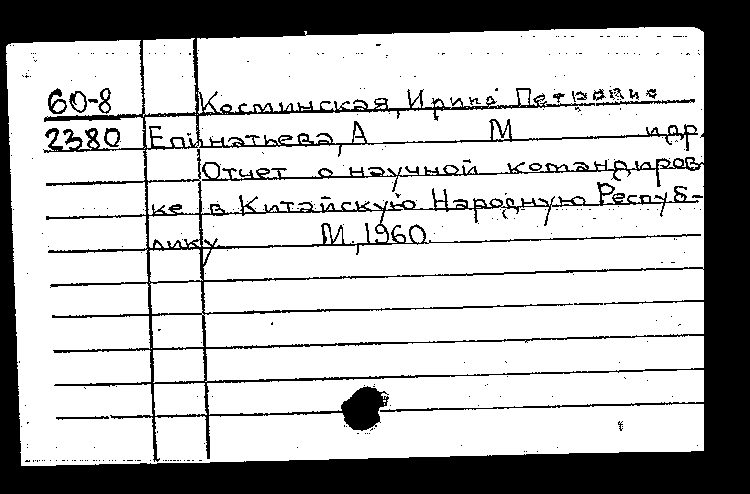 60-8 Косминская, Ирина Петровна
2380 Епинатьева, А М и др.
Отчет о научной командиров-
ке в Китайскую Народную Респуб-
лику М, 1960.